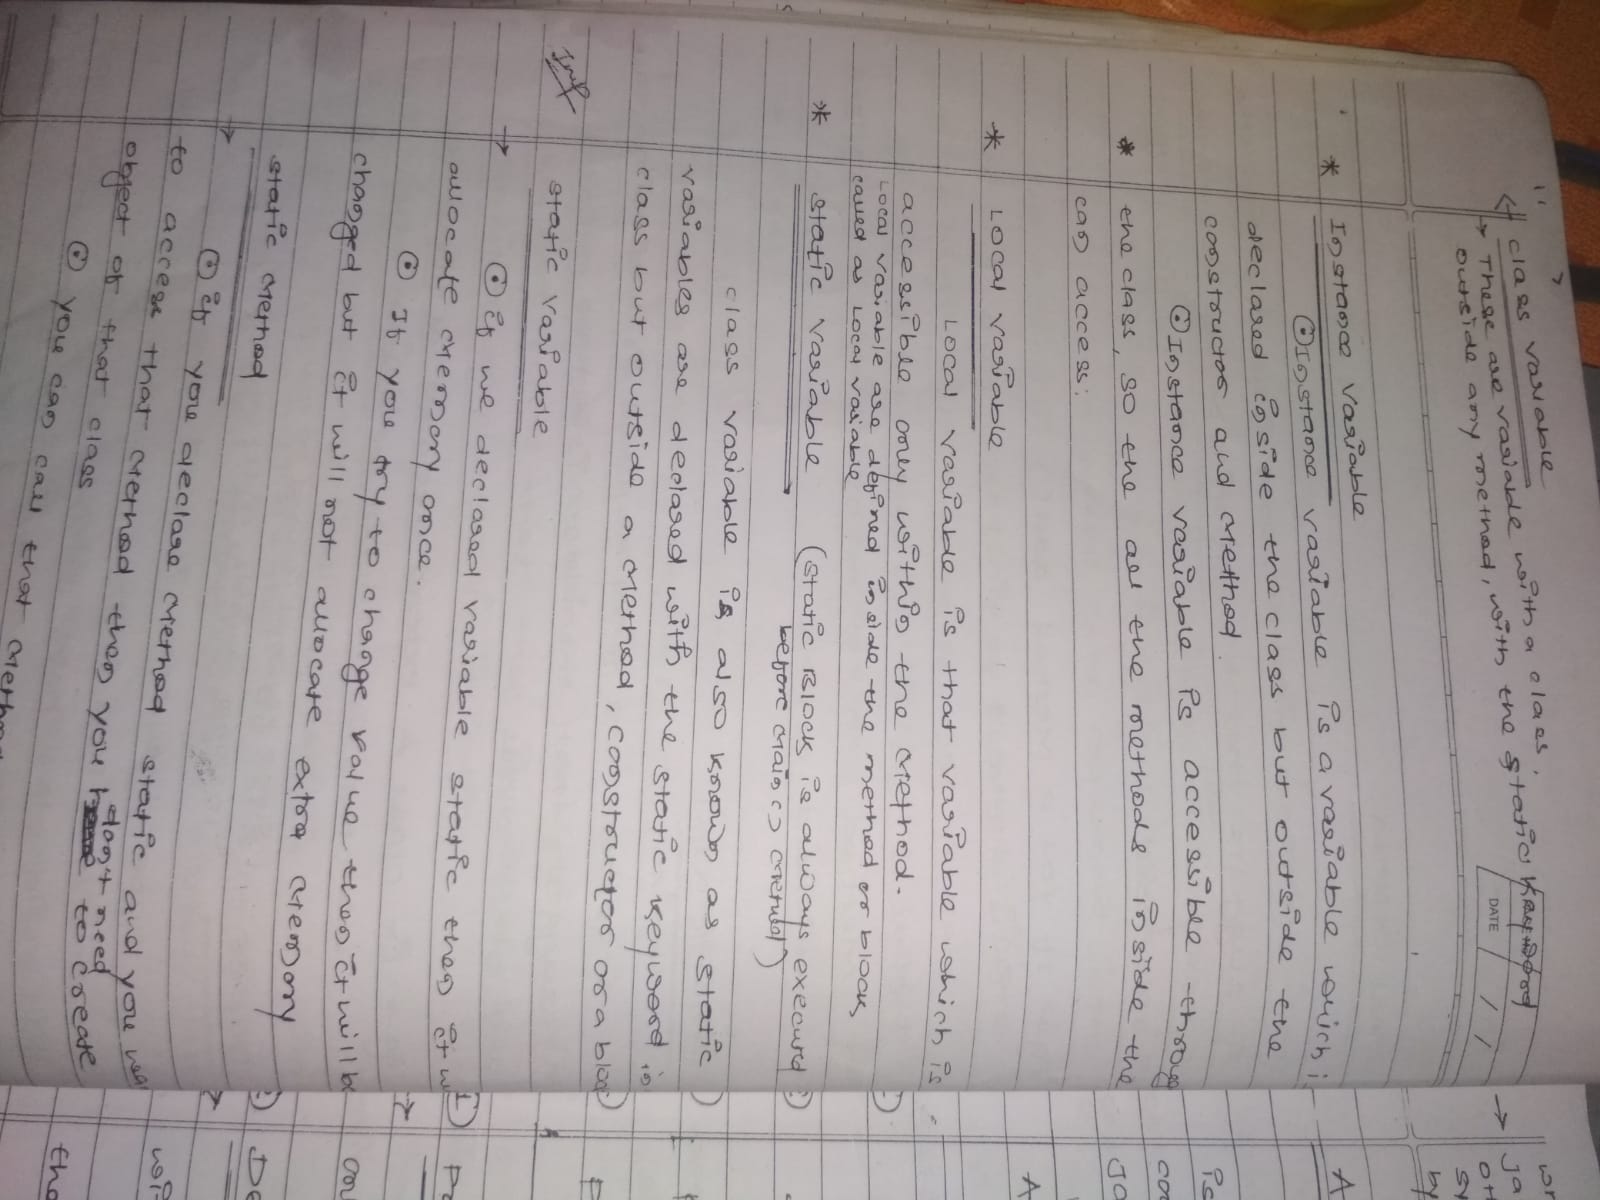 class variable
→ These are variable with a class.
outside any method, with the static keyword
DATE / /
* Instance variable
⊙ Instance variable is a variable which i
declared inside the class but outside the
constructor and method.
⊙ Instance variable is accessible throug
* the class, so the all the methods inside the
can access:
* Local variable
Local variable is that variable which is
accessible only within the method.
Local variable are defined inside the method or block
called as Local variable
* static variable (static Block is always executed
before main() method)
class variable is also known as static
variables are declared with the static keyword in
class but outside a method, constructor or a bloc
Imp
static variable
→ ⊙ if we declared variable static then it w
allocate memory once.
⊙ If you try to change value then it will b
changed but it will not allocate extra memory
static method
→ ⊙ if you declare method static and you wa
to access that method then you don't need to create
object of that class
⊙ you can call that method